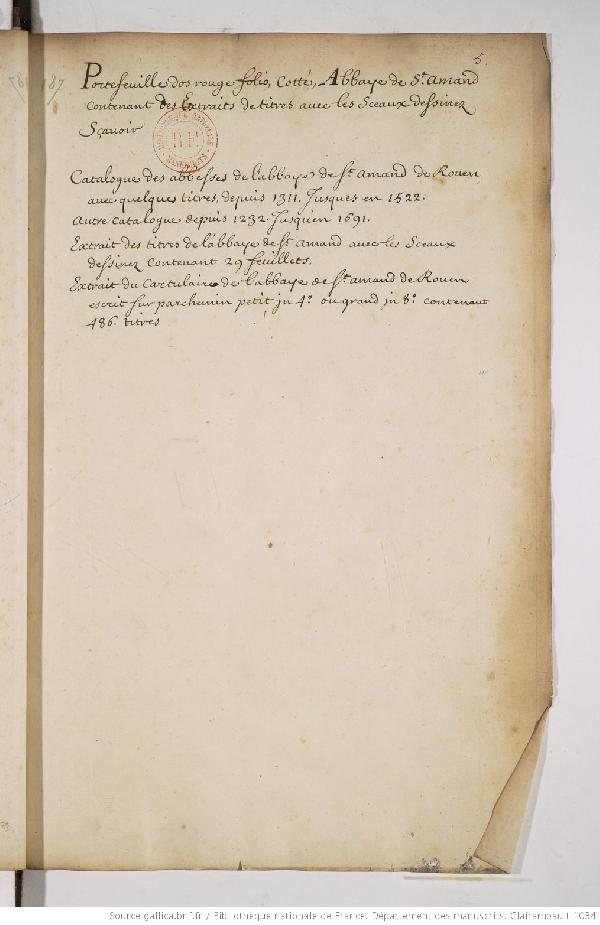 5.
187
Portefeuille dos rouge folio, Cotté, Abbaye de St. Amand
contenant Des Extraits de titres auec les Sceaux dessinez
Sçauoir
Catalogue des abbesses de labbaye de St. amand de Rouen
auec quelques titres, depuis 1311. Jusques en 1522.
autre catalogue depuis 1232. Jusqu'en 1691.
Extrait des titres de l'abbaye de St. amand auec les Sceaux
dessinez contenant 29 feuillets.
Extrait du Cartulaire de l'abbaye de St. amand de Rouen
escrit sur parchemin petit jn 4°. ou grand jn 8°. contenant
486. titres
Source gallica.bnf.fr / Bibliothèque nationale de France. Département des manuscrits. Clairambault 1034